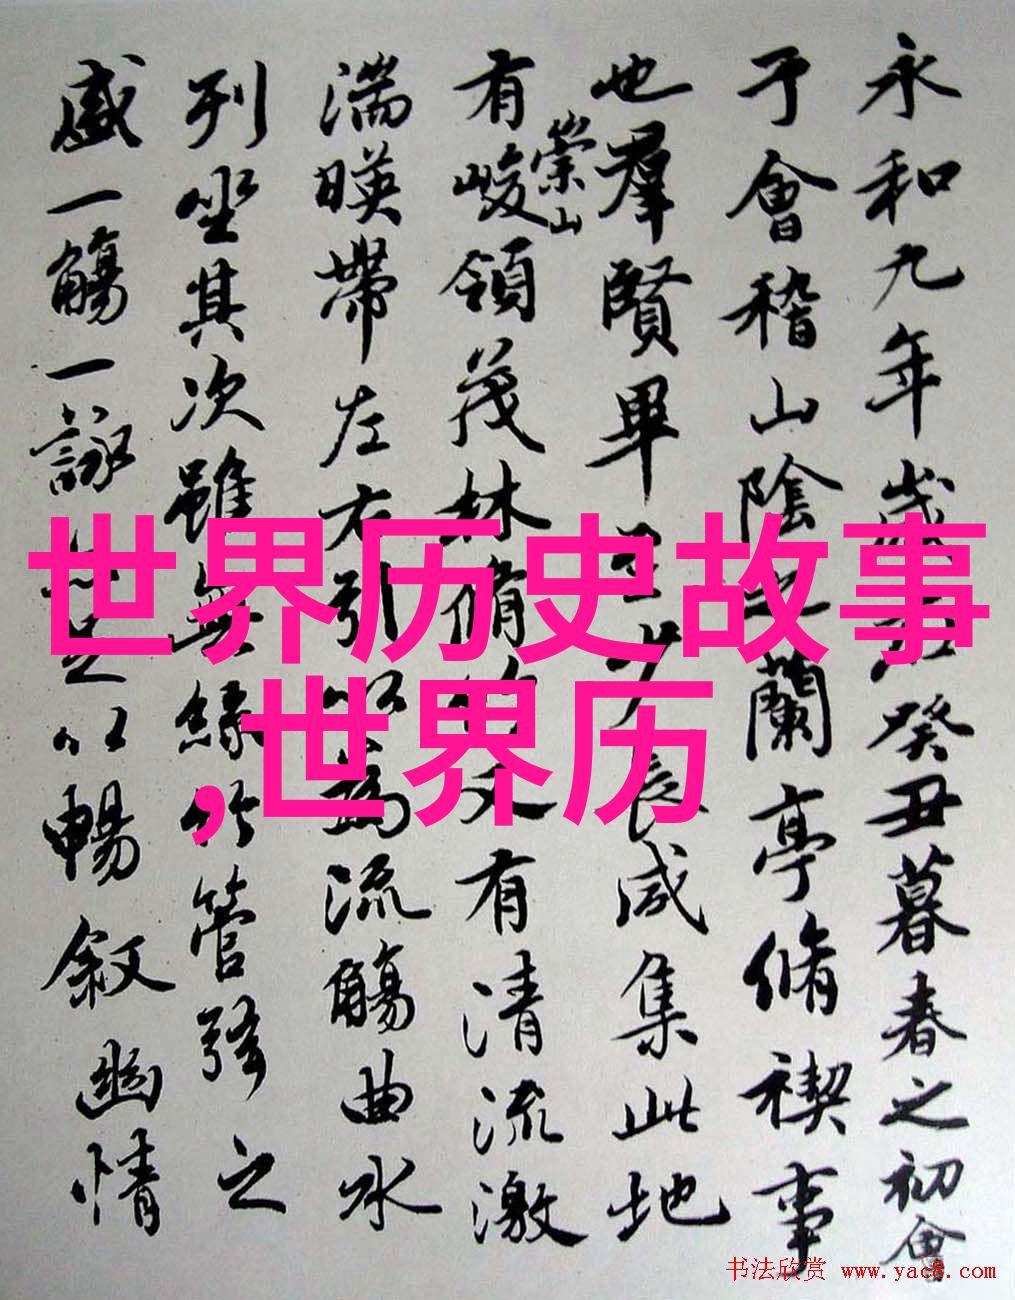 永和九年歲在癸丑暮春之初會
于會稽山陰之蘭亭脩禊事
也羣賢畢至少長咸集此地
有崇山峻領茂林脩竹又有清流激
湍暎帶左右引以為流觴曲水
列坐其次雖無絲竹管弦之
盛一觴一詠亦足以暢敘幽情
世界历史故事
,世界历
书法欣赏 www.yac8.com